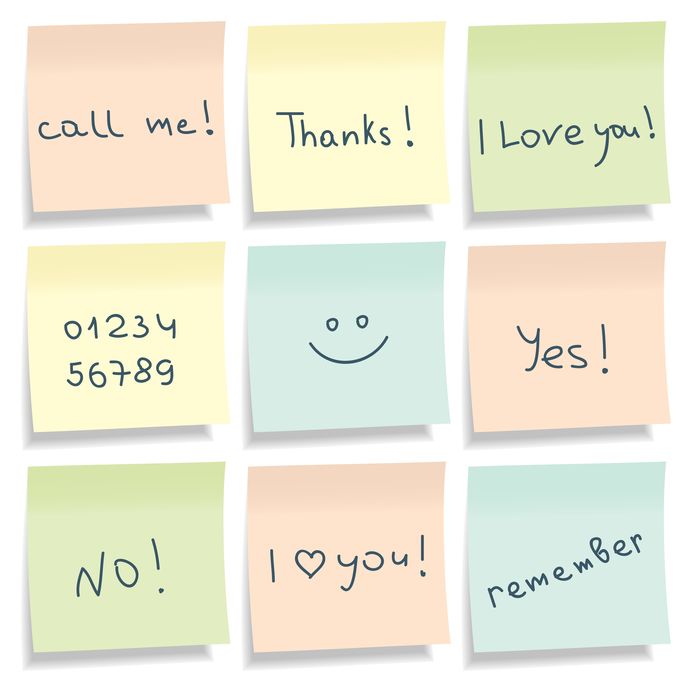 call me!
Thanks!
I Love you!
01234
56789
Yes!
NO!
I ♡ you!
remember